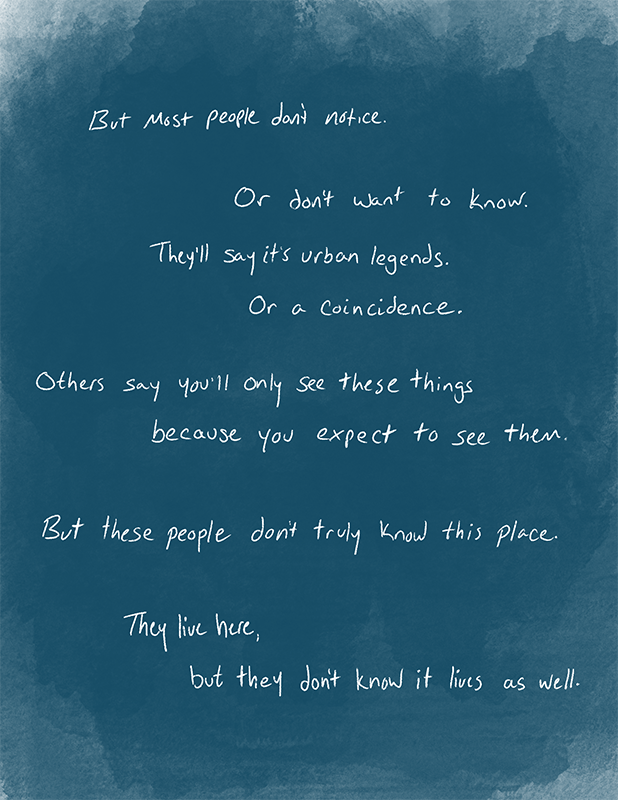 But most people don't notice.
Or don't want to know.
They'll say it's urban legends.
Or a coincidence.
Others say you'll only see these things
because you expect to see them.
But these people don't truly know this place.
They live here,
but they don't know it lives as well.